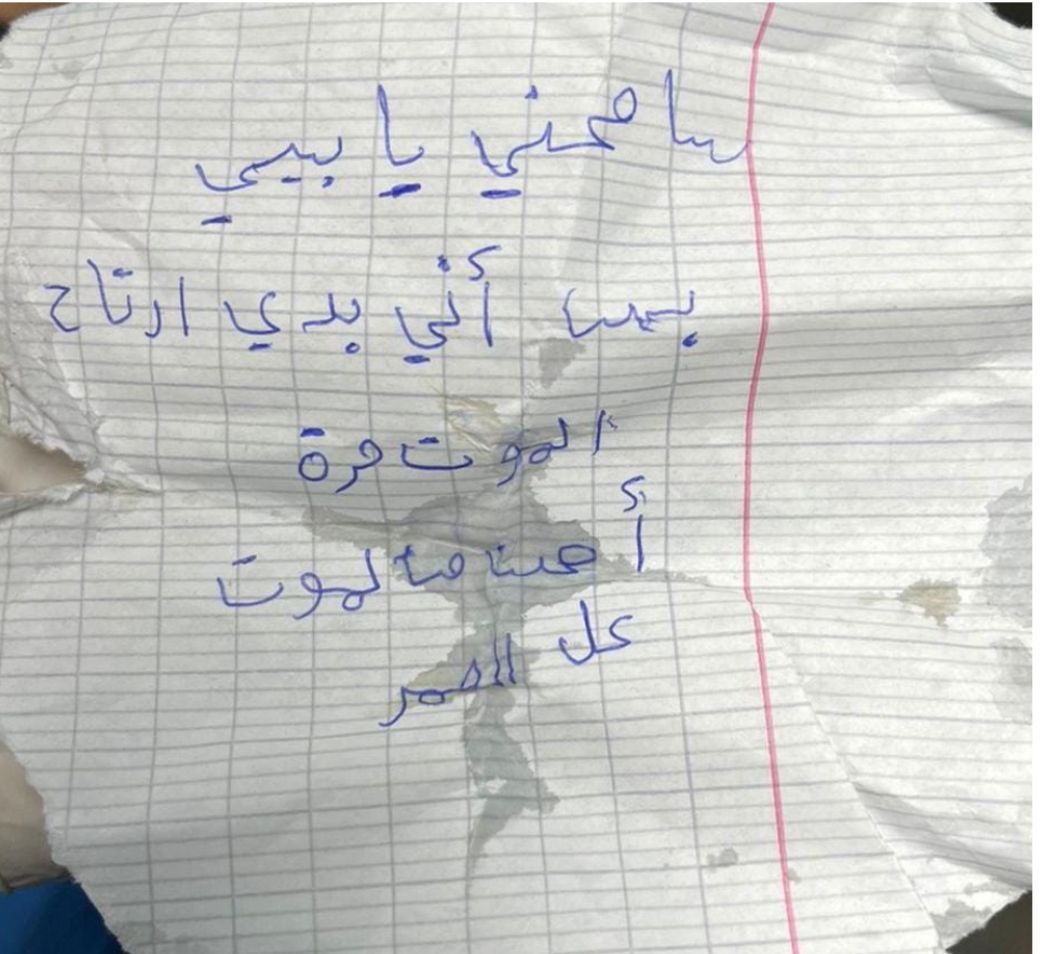 سامحني يا بيي
بس أني بدي ارتاح
الموت مرة
أهنا مالموت
كل العمر